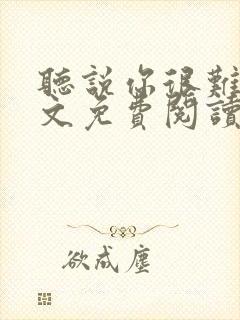 聽說你很難
文免費閱讀
欲成塵